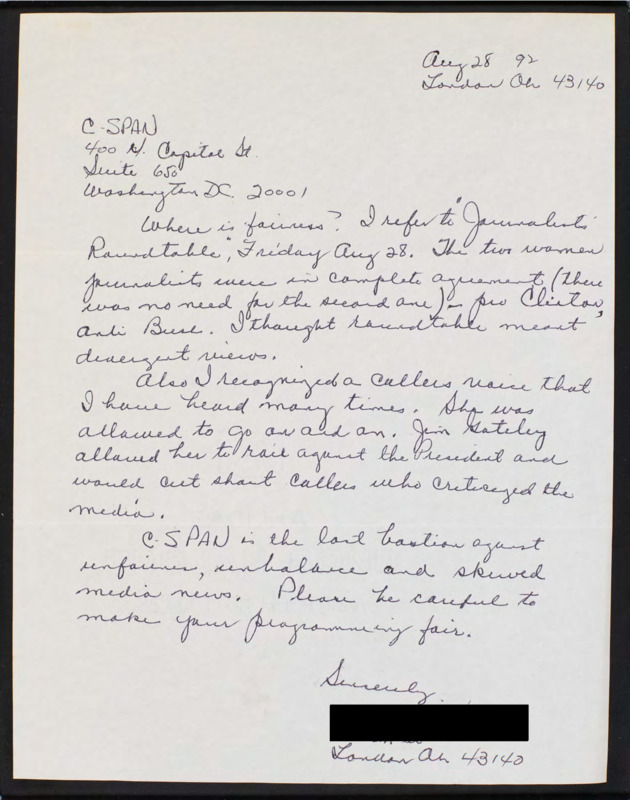 Aug 28 92
London Oh 43140
C-SPAN
400 N. Capitol St.
Suite 650
Washington DC. 20001
Where is fairness? I refer to "Journalists'
Roundtable", Friday Aug 28. The two women
journalists were in complete agreement (there
was no need for the second one) - pro Clinton,
anti Bush. I thought roundtable meant
divergent views.
Also I recognized a callers voice that
I have heard many times. She was
allowed to go on and on. Jim
allowed her to rail against the President and
would cut short callers who criticized the
media.
C-SPAN is the last bastion against
unfairness, unbalance and skewed
media news. Please be careful to
make your programming fair.
Sincerely,
London Oh 43140